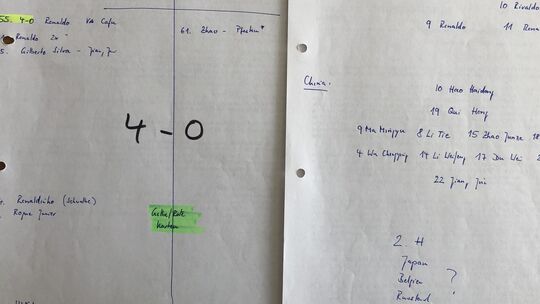 55. 4-0 Ronaldo VA Cafu
Ronaldo 2x
5. Gilberto Silva - Jian, Jun
61. Zhao - Pfosten
4 - 0
Ronaldinho (Schulter)
Roque Junior
Gelbe/Rote
Karten
10 Rivaldo
9 Ronaldo 11
China:
10 Hao Haidong
19 Qui Hong
9 Ma Mingyu 8 Li Tie 15 Zhao Junze 18
4 Wu Chengying 14 Li Weifeng 17 Du Wei
22 Jiang Jin
2. H
Japan
Belgien ?
Russland